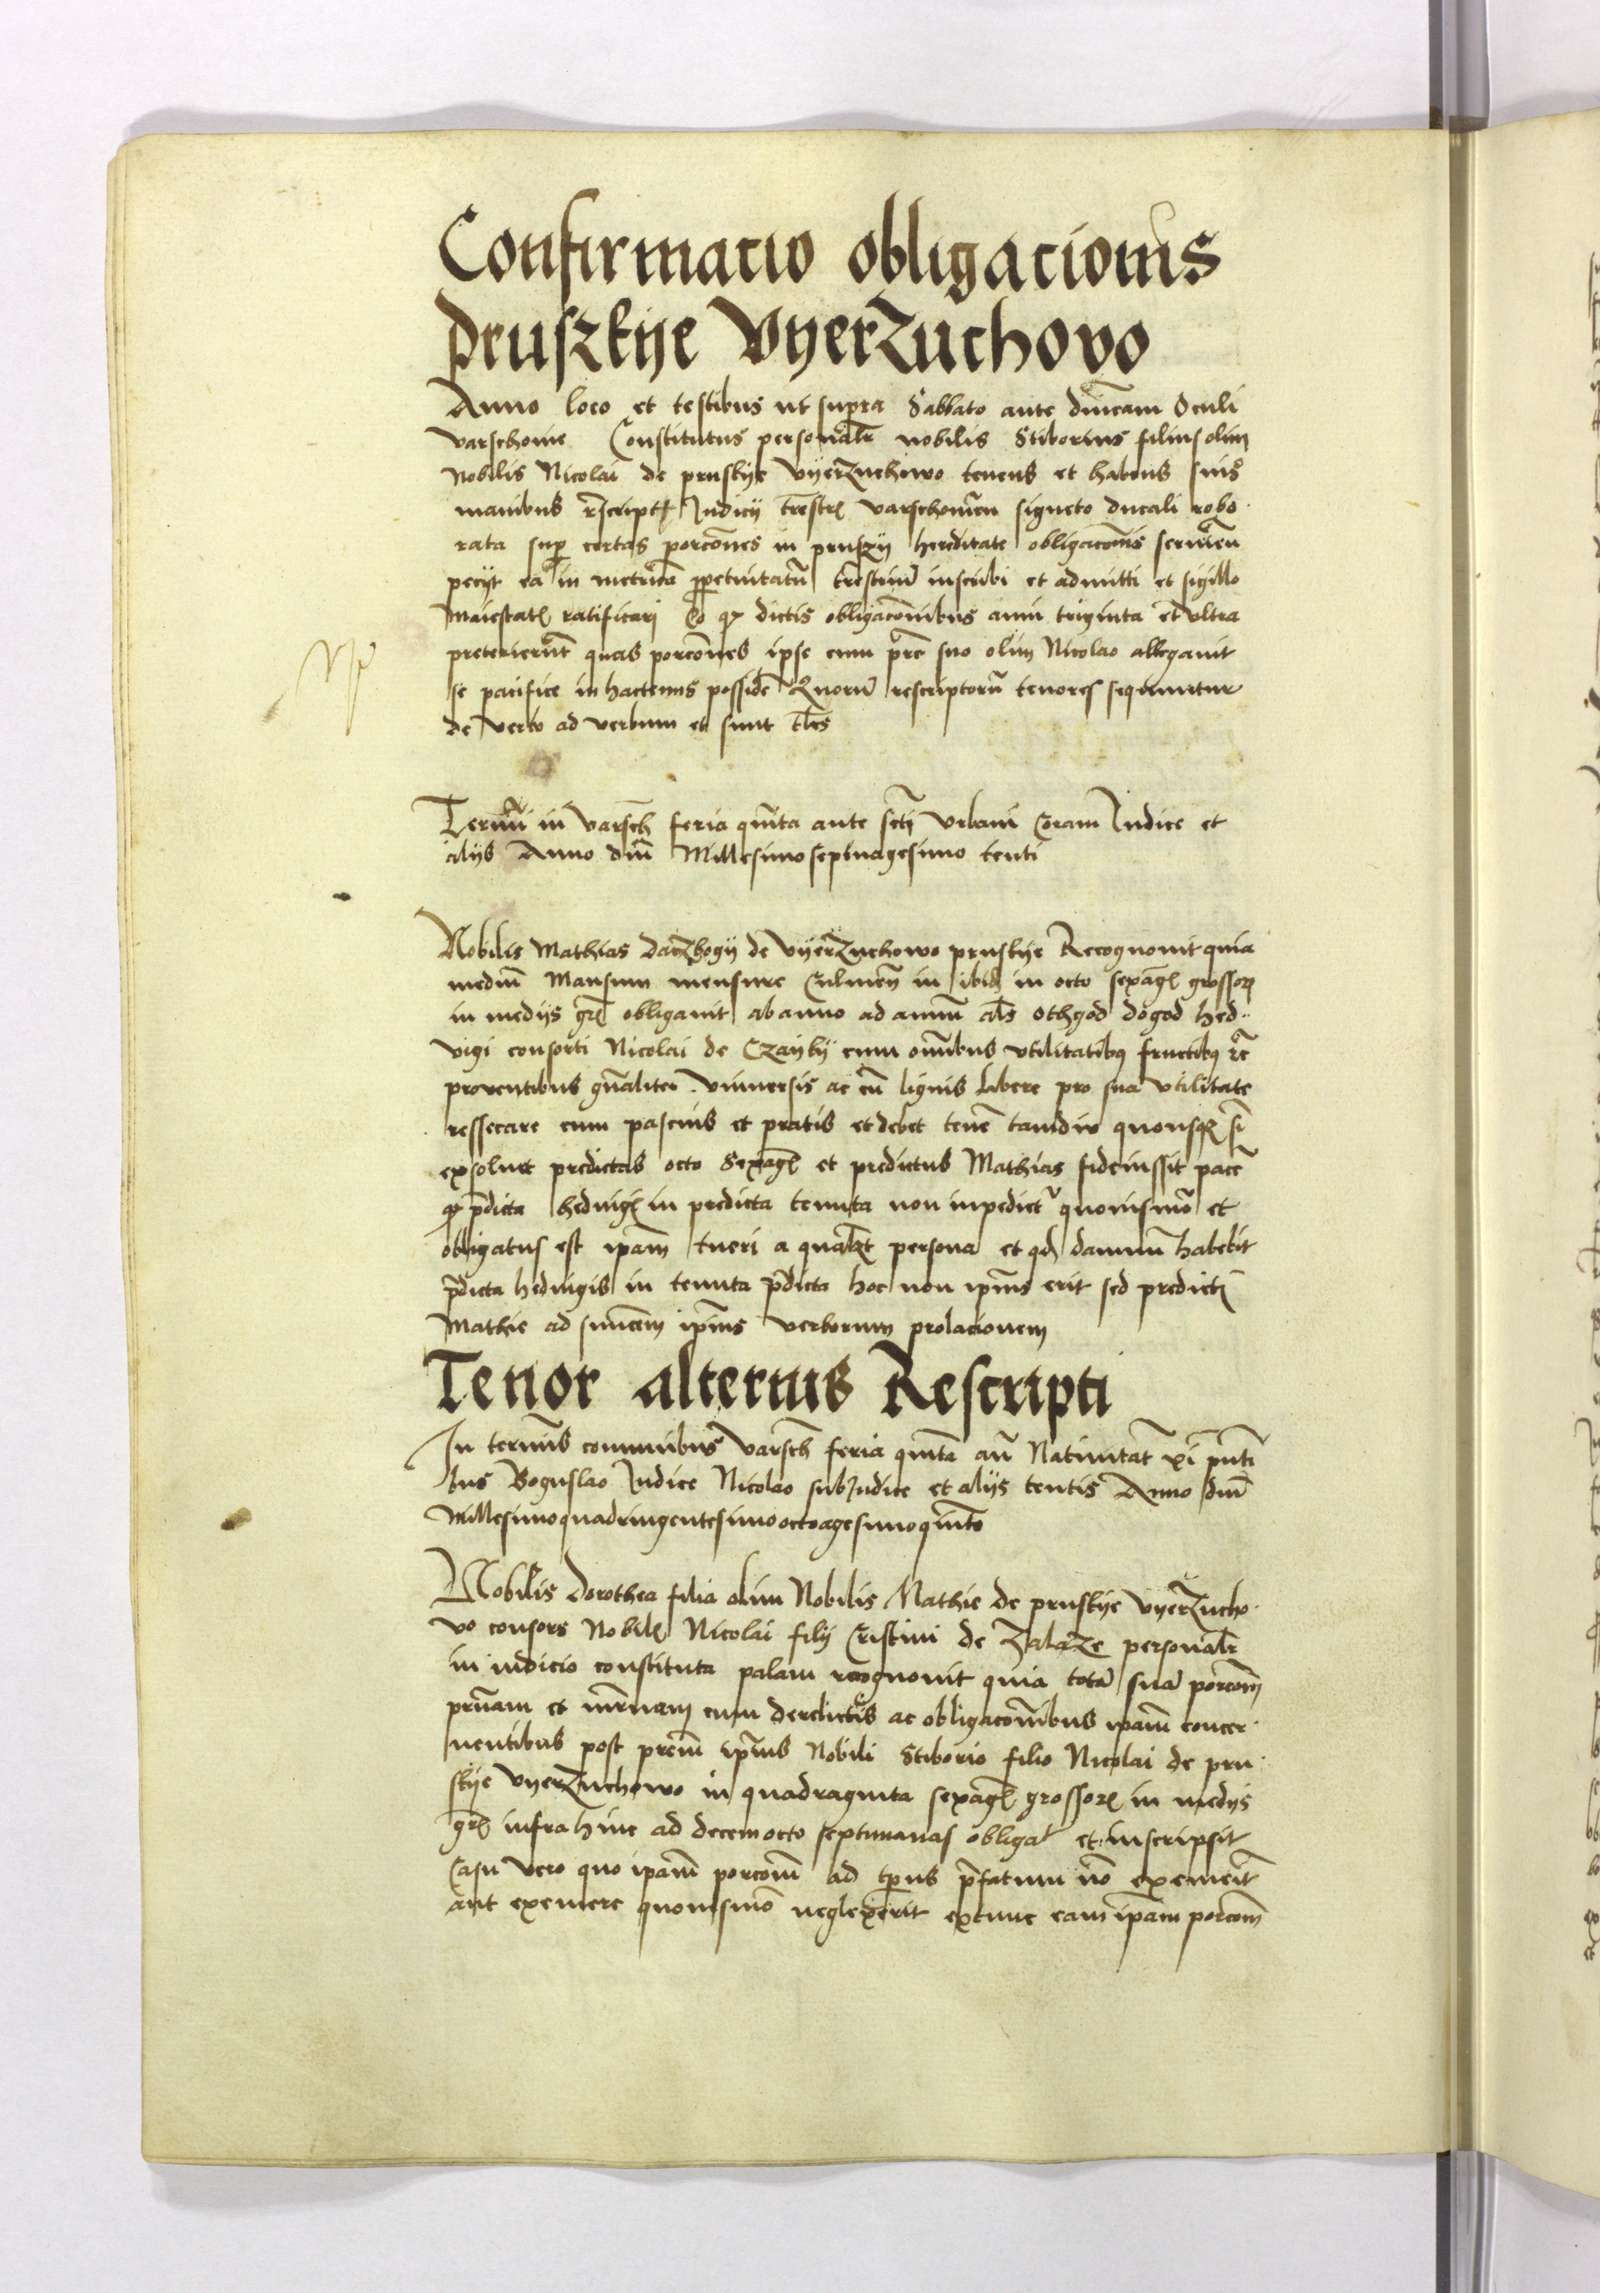 Confirmacio obligacionis
pruszkije Vyerzuchovo
Anno loco et testibus ut supra Sabbato ante dnicam Oculi
varschovie Constitutus personalr nobilis Stiborius filius olim
Nobilis Nicolai de pruskye Vyerzuchowo tenens et habens suis
manibus rescripta Judicij trestr varschovien signeto ducali robo
rata super certas porcones in pruszy hereditate obligacoms
pecijt ea in metrica perpetuitatu trestriu inscribi et admitti et sigillo
Maiestatis ratificari Eo quod dictis obligaconibus anni triginta et ultra
preterierut quas porcones ipse cum pre suo olim Nicolao allegavit
se pacifice in hactenus posside Quoru rescriptoru tenores sequuntur
de verbo ad verbum et sunt tles
Termi in varsch feria qnta ante scti Urbani Coram Judice et
alijs Anno dni Millesimo septuagesimo tenti
Nobilis Mathias daczbogij de Vyerzuchowo pruskye Recognovit quia
mediu Mansum mensure Culmen in ibidem in octo sexag grossor
in medijs gr obligavit ab anno ad annu als othgod dogod hed
vigi consorti Nicolai de Czayky cum omibus utilitatibus fructibus etc
proventibus gnaliter universis ac cu lignis libere pro sua utilitate
ressecare cum pascuis et pratis et debet tene tamdiu quousque si
exsoluet predictas octo Sexag et predictus Mathias fideiussit pace
quod pdicta hedvigis in predicta tenuta non inpediet quovismo et
obligatus est ipam tueri a qualibet persona et quod damnu habebit
pdicta hedvigis in tenuta pdicta hoc non ipius erit sed predicti
Mathie ad simcem ipius verborum prolacionem
Tenor alterius Rescripti
In termis communibus varsch feria quita an Nativitat xi pnti
bus Boguslao Judice Nicolao subJudice et alijs tentis Anno dni
Millesimoquadringentesimooctoagesimoquinto
Nobilis dorothea filia olim Nobilis Mathie de pruskye Vyerzucho
vo consors Nobilis Nicolai filij Cristini de Zalaze personalr
in iudicio constituta palam recognovit quia tota sua porcom
prnam et mrnam cum derelictis ac obligaconibus ipam concer
nentibus post prem ipius Nobili Stiborio filio Nicolai de pru
skye Vyerzuchowo in quadraginta sexag grossor in medijs
gr infra hinc ad decem octo septimanas obligat et inscripsit
Casu vero quo ipam porcom ad tpus pfatum no exemerit
aut exemere quovismo neglexerit extunc eam ipam porcom